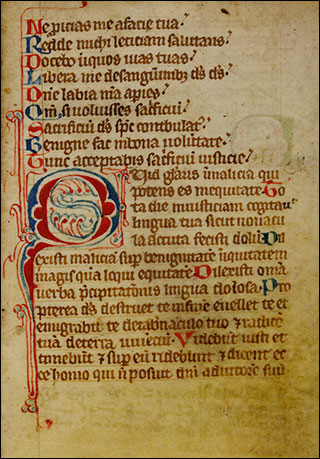 Ne ꝓicias me a facie tua:
Redde michi leticiam salutaris:
Docebo iniquos uias tuas:
Libera me de sanguinib; ds̄ ds̄:
Dn̄e labia m̄a apies:
Qm̄ si voluisses sac̄ficiū:
Sacrificiū dō sp̄c contribulat᷒:
Benigne fac in bona volūtate
Tunc acceptabis sac̄ficiū iusticie
Quid gl̄iaris in malicia qui
potens es in iniquitate. To
ta die iniusticiam cogitaū
lingua tua sicut nouacu
la accuta fecisti dolū. Di
lexisti maliciā sup benignitatē iniquitatem
magis quā loqui equitatē. Dilexisti om̄ia
uerba p̄cipitationis lingua dolosa. Pro
pterea ds̄ destruet te in fine euellet te et
emigrabit te de tabnaculo tuo & radicē
tuā de terra viuēciū. Videbūt iusti et
timebūt & sup eū ridebunt & dicent ec
ce homo qui n̄ posuit dm̄ adiutorē suū